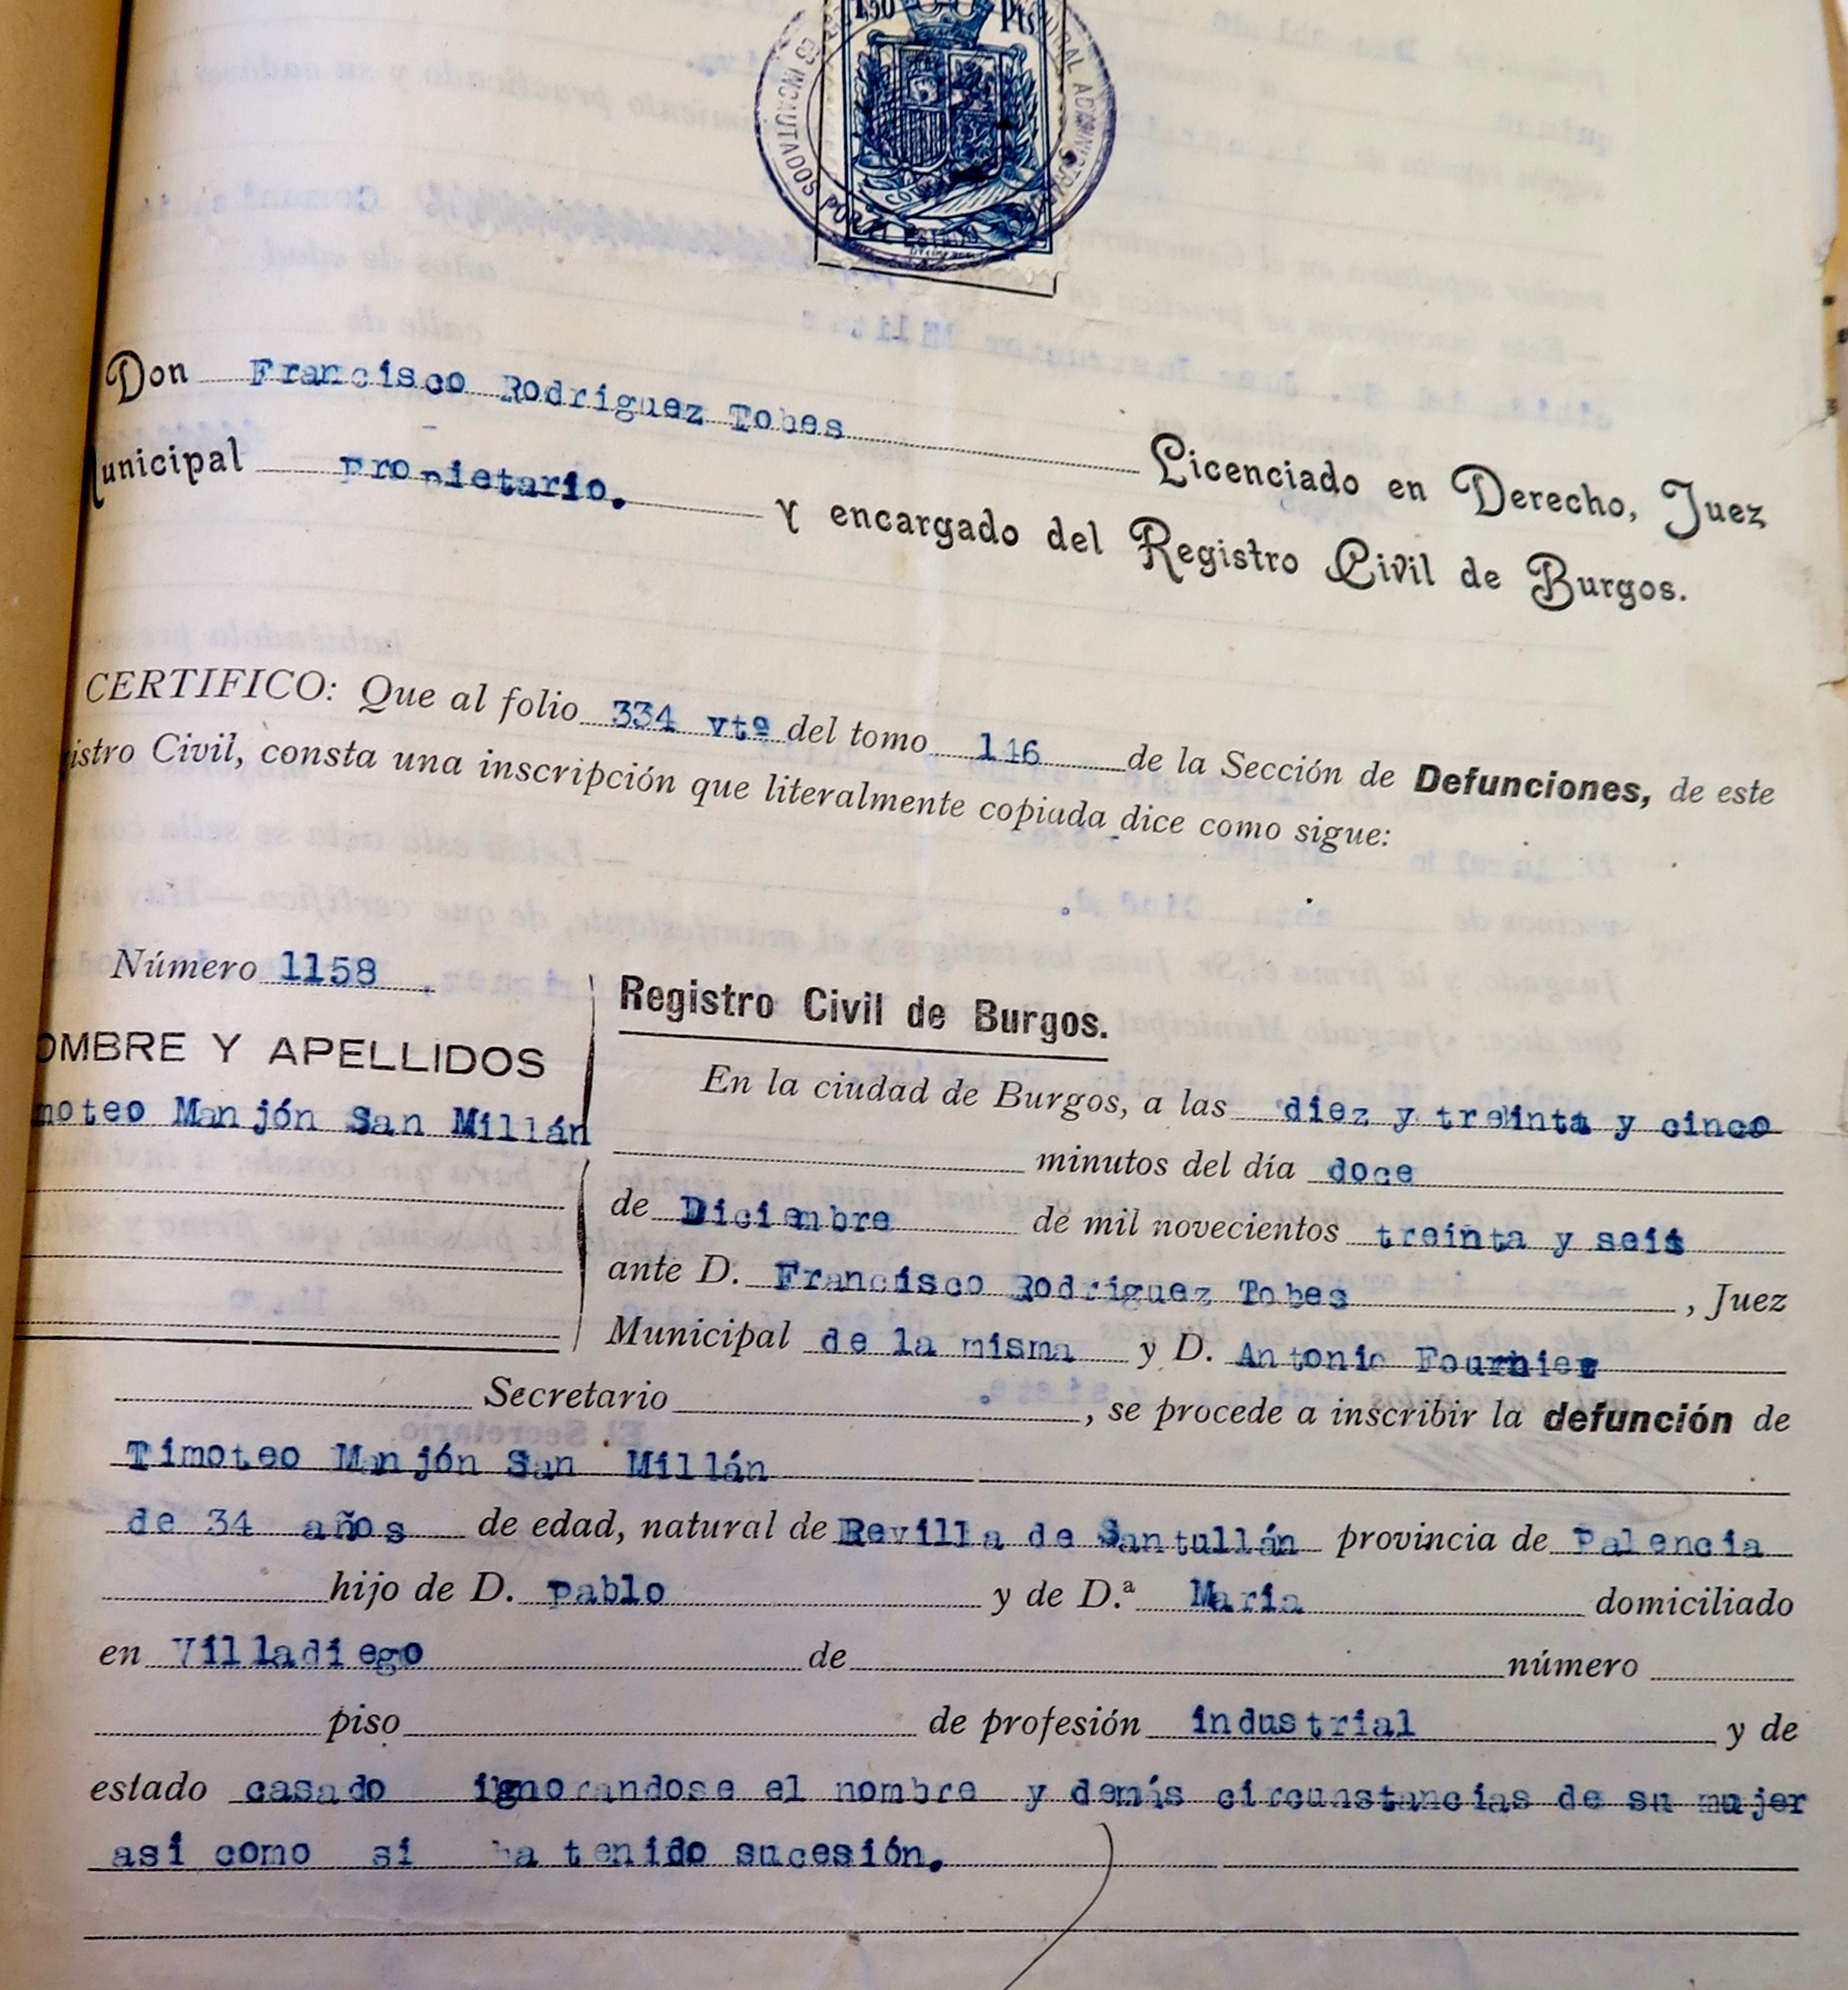 1,50 Pts
INCAUTADOS POR EL ESTADO
Don Francisco Rodriguez Tobes Licenciado en Derecho, Juez
unicipal propietario. y encargado del Registro Civil de Burgos.
CERTIFICO: Que al folio 334 vtº del tomo 146 de la Sección de Defunciones, de este
istro Civil, consta una inscripción que literalmente copiada dice como sigue:
Número 1158
OMBRE Y APELLIDOS
moteo Manjón San Millán
Registro Civil de Burgos.
En la ciudad de Burgos, a las diez y treinta y cinco
minutos del día doce
de Diciembre de mil novecientos treinta y seis
ante D. Francisco Rodriguez Tobes, Juez
Municipal de la misma y D. Antonio Fournier
Secretario, se procede a inscribir la defunción de
Timoteo Manjón San Millán
de 34 años de edad, natural de Revilla de Santullán provincia de Palencia
hijo de D. Pablo y de D.ª María domiciliado
en Villadiego de número
piso de profesión industrial y de
estado casado ignorandose el nombre y demás circunstancias de su mujer
así como si ha tenido sucesión.